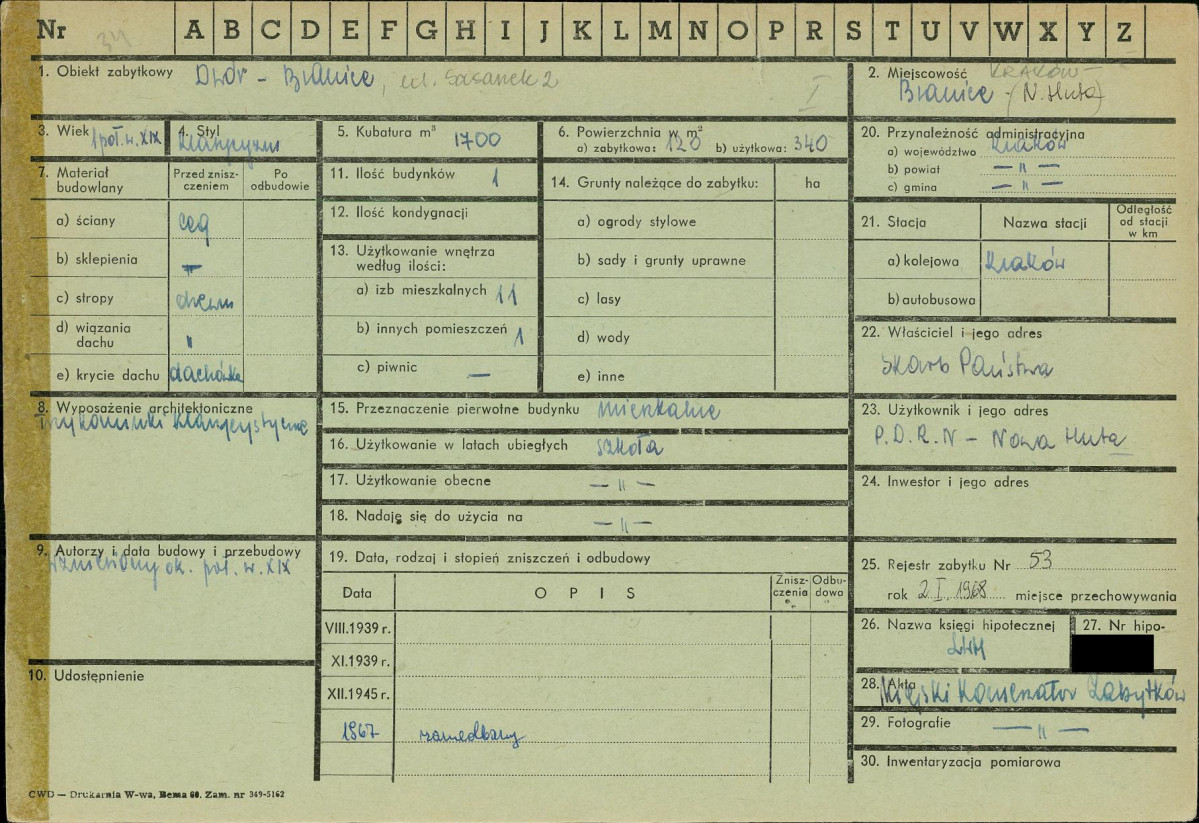 Nr 34 A B C D E F G H I J K L M N O P R S T U V W X Y Z
1. Obiekt zabytkowy Dwór - Branice, ul. Sasanek 2
I
2. Miejscowość KRAKÓW -
Branice - (N. Huta)
3. Wiek 1 poł. w. XIX
4. Styl klasycyzm
5. Kubatura m³ 1700
6. Powierzchnia w m²
a) zabytkowa: 120 b) użytkowa: 340
7. Materiał budowlany
Przed zniszczeniem
Po odbudowie
a) ściany ceg
b) sklepienia —
c) stropy drewn
d) wiązania dachu "
e) krycie dachu dachówka
8. Wyposażenie architektoniczne
trzy kominki klasycystyczne
9. Autorzy i data budowy i przebudowy
wzniesiony ok. poł. w. XIX
10. Udostępnienie
11. Ilość budynków 1
12. Ilość kondygnacji
13. Użytkowanie wnętrza
według ilości:
a) izb mieszkalnych 11
b) innych pomieszczeń 1
c) piwnic —
14. Grunty należące do zabytku: ha
a) ogrody stylowe
b) sady i grunty uprawne
c) lasy
d) wody
e) inne
15. Przeznaczenie pierwotne budynku mieszkalne
16. Użytkowanie w latach ubiegłych szkoła
17. Użytkowanie obecne — " —
18. Nadaję się do użycia na — " —
19. Data, rodzaj i stopień zniszczeń i odbudowy
Data OPIS Zniszczenia % Odbudowa %
VIII.1939 r.
XI.1939 r.
XII.1945 r.
1967 zaniedbany
20. Przynależność administracyjna
a) województwo Kraków
b) powiat — " —
c) gmina — " —
21. Stacja Nazwa stacji Odległość od stacji w km
a) kolejowa Kraków
b) autobusowa
22. Właściciel i jego adres
Skarb Państwa
23. Użytkownik i jego adres
P.D.R.N - Nowa Huta
24. Inwestor i jego adres
25. Rejestr zabytku Nr 53
rok 2.I.1968 miejsce przechowywania
26. Nazwa księgi hipotecznej
LWH
27. Nr hipo-
28. Akta Miejski Konserwator Zabytków
29. Fotografie — " —
30. Inwentaryzacja pomiarowa
CWD — Drukarnia W-wa, Bema 60. Zam. nr 349-5162